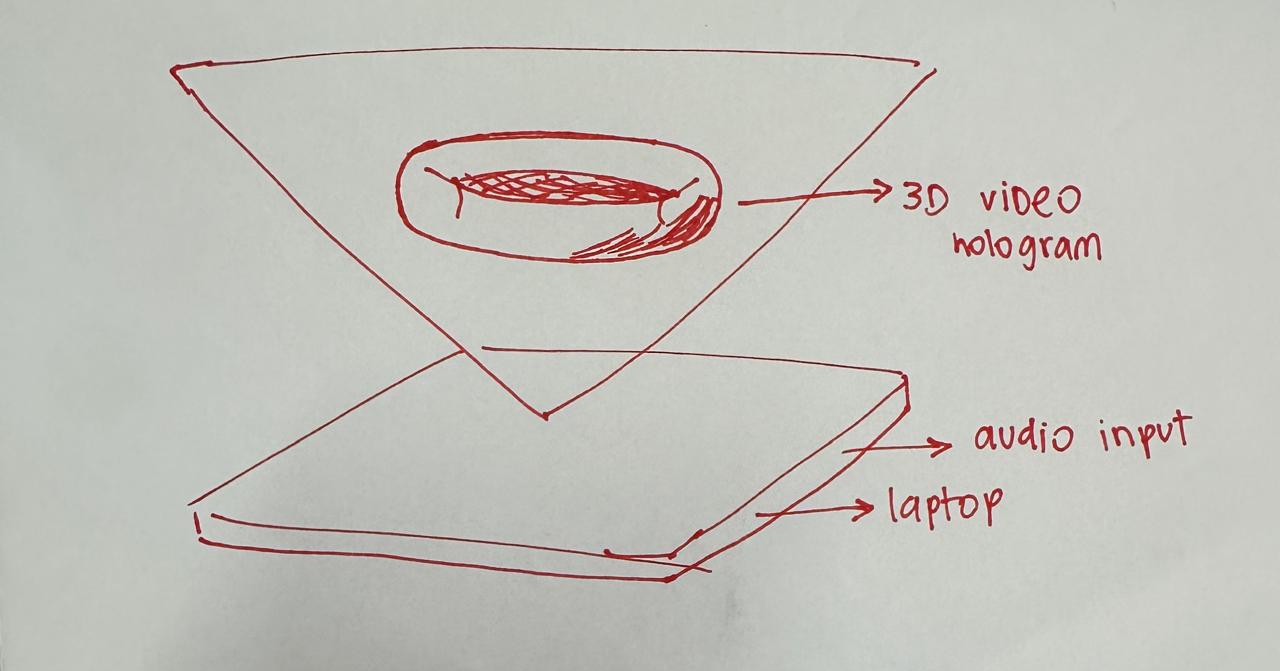 3D video
hologram
audio input
laptop